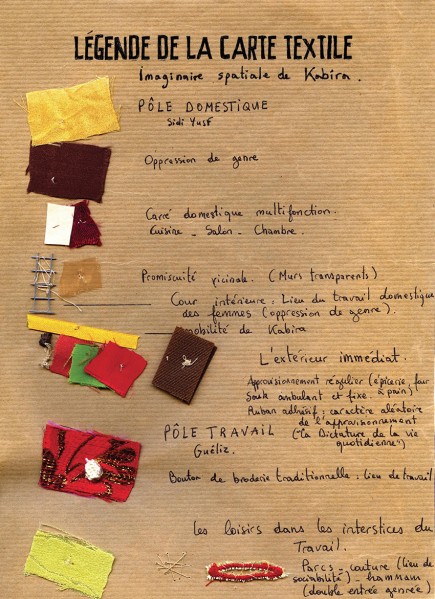 LÉGENDE DE LA CARTE TEXTILE
Imaginaire spatiale de Kabira.
PÔLE DOMESTIQUE
Sidi Yusf
Oppression de genre
Carré domestique multifonction.
Cuisine - Salon - Chambre.
Promiscuité vicinale. (Murs transparents)
Cour intérieure : Lieu du travail domestique
des femmes (oppression de genre).
mobilité de Kabira
L'extérieur immédiat.
Approvisionnement régulier (épicerie, four
à pain)
Souk ambulant et fixe.
Ruban adhésif : caractère aléatoire
de l'approvisionnement
("La Dictature de la vie
quotidienne")
PÔLE TRAVAIL
Guéliz.
Bouton de broderie traditionnelle : lieu de travail
Les loisirs dans les interstices du
Travail.
Parcs - couture (lieu de
sociabilité) - hammam
(double entrée genrée)